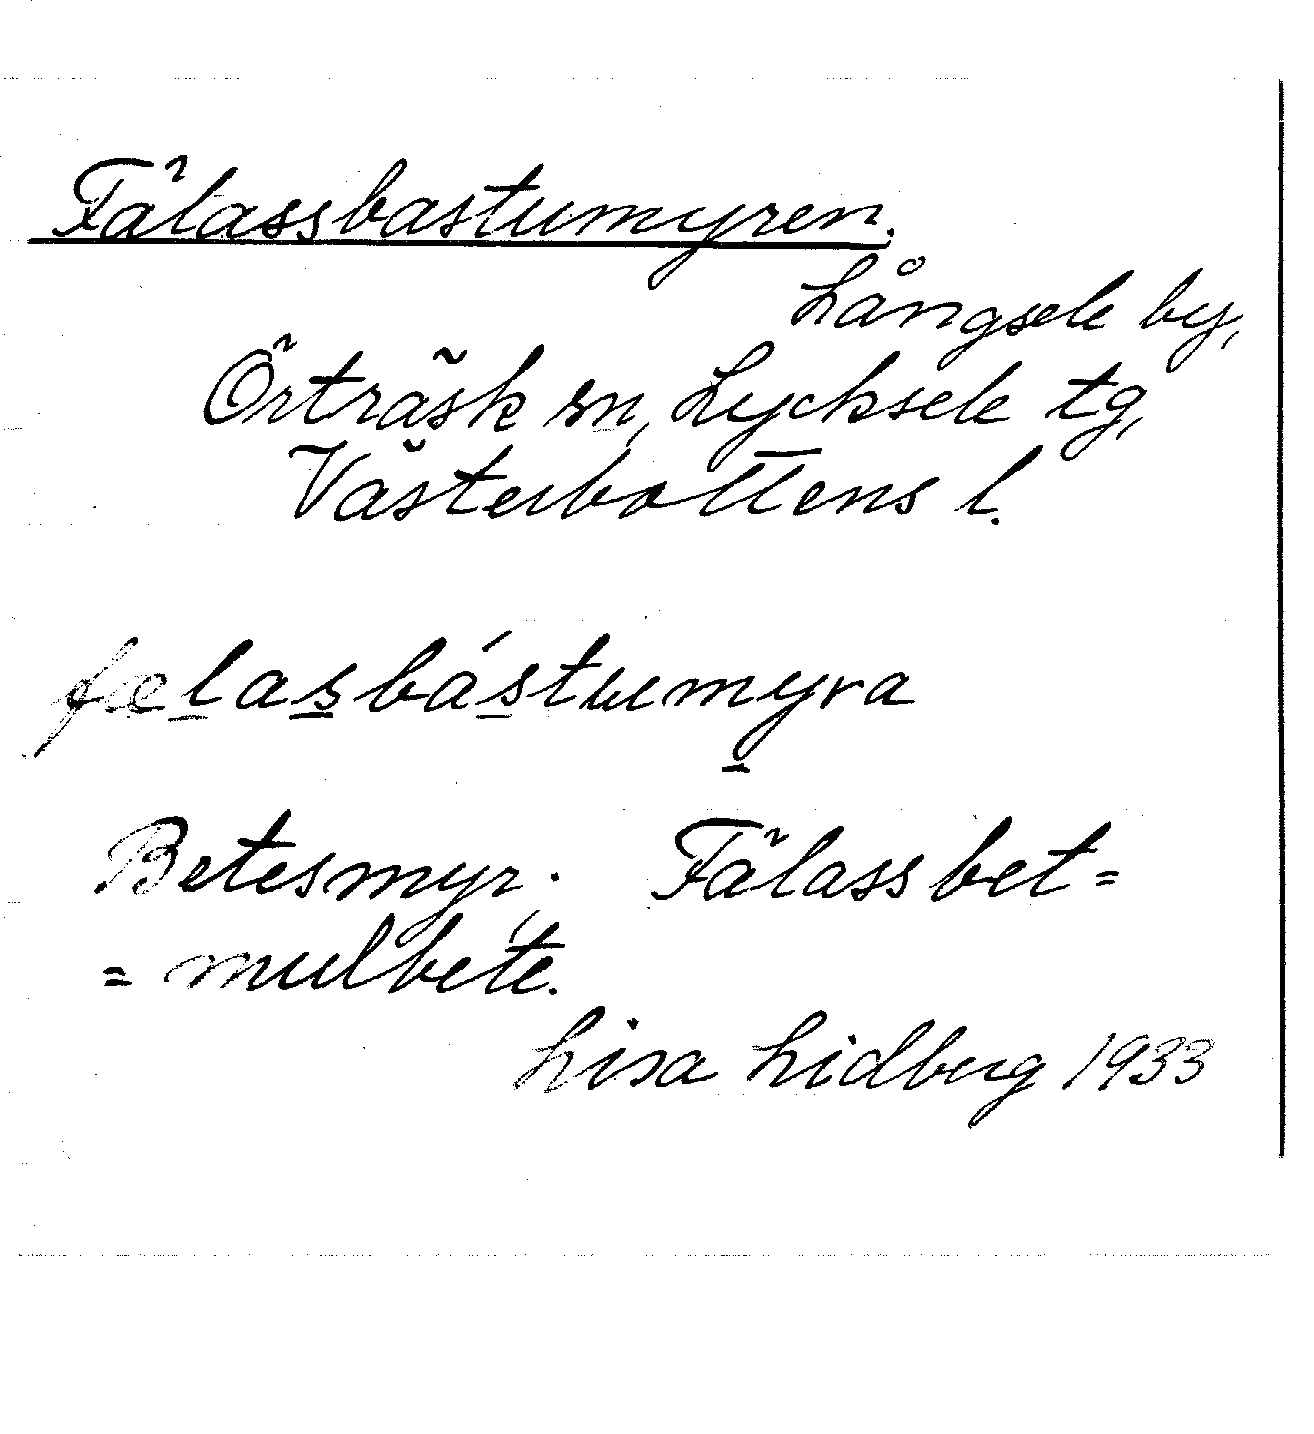 Fälassbastumyren.
Långsele by,
Örträsk sn, Lycksele tg,
Västerbottens l.
fælasbástumyra
Betesmyr. Fälassbet=
= mulbete.
Lisa Lidberg 1933